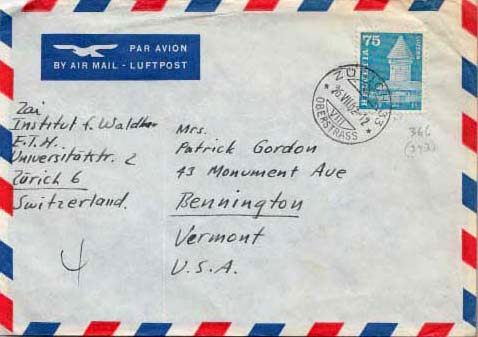 PAR AVION
BY AIR MAIL - LUFTPOST
75
HELVETIA
LUZERN
ZÜRICH 33
OBERSTRASS
Zai
Institut f. Waldbau
E.T.H.
Universitätstr. 2
Zürich 6
Switzerland.
Mrs.
Patrick Gordon
43 Monument Ave
Bennington
Vermont
U.S.A.
366